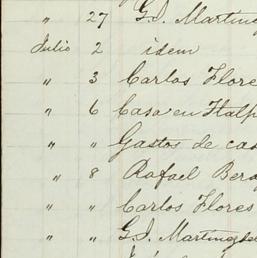 " 27 G. I. Martínez
Julio 2 idem
" 3 Carlos Flores
" 6 Casa en Ttalp
" " Gastos de cas
" 8 Rafael Bera
" " Carlos Flores
" " G. I. Martínez